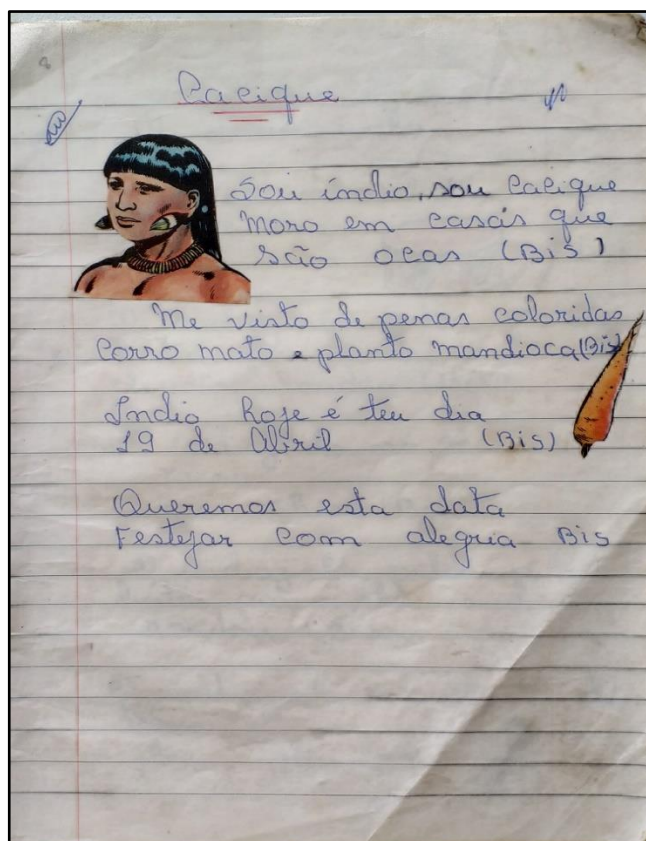 Cacique
Sou índio, sou Cacique
Moro em casas que
são ocas (Bis)
Me visto de penas coloridas
Corro mato e planto mandioca (Bis)
Índio hoje é teu dia
19 de Abril (Bis)
Queremos esta data
Festejar com alegria Bis